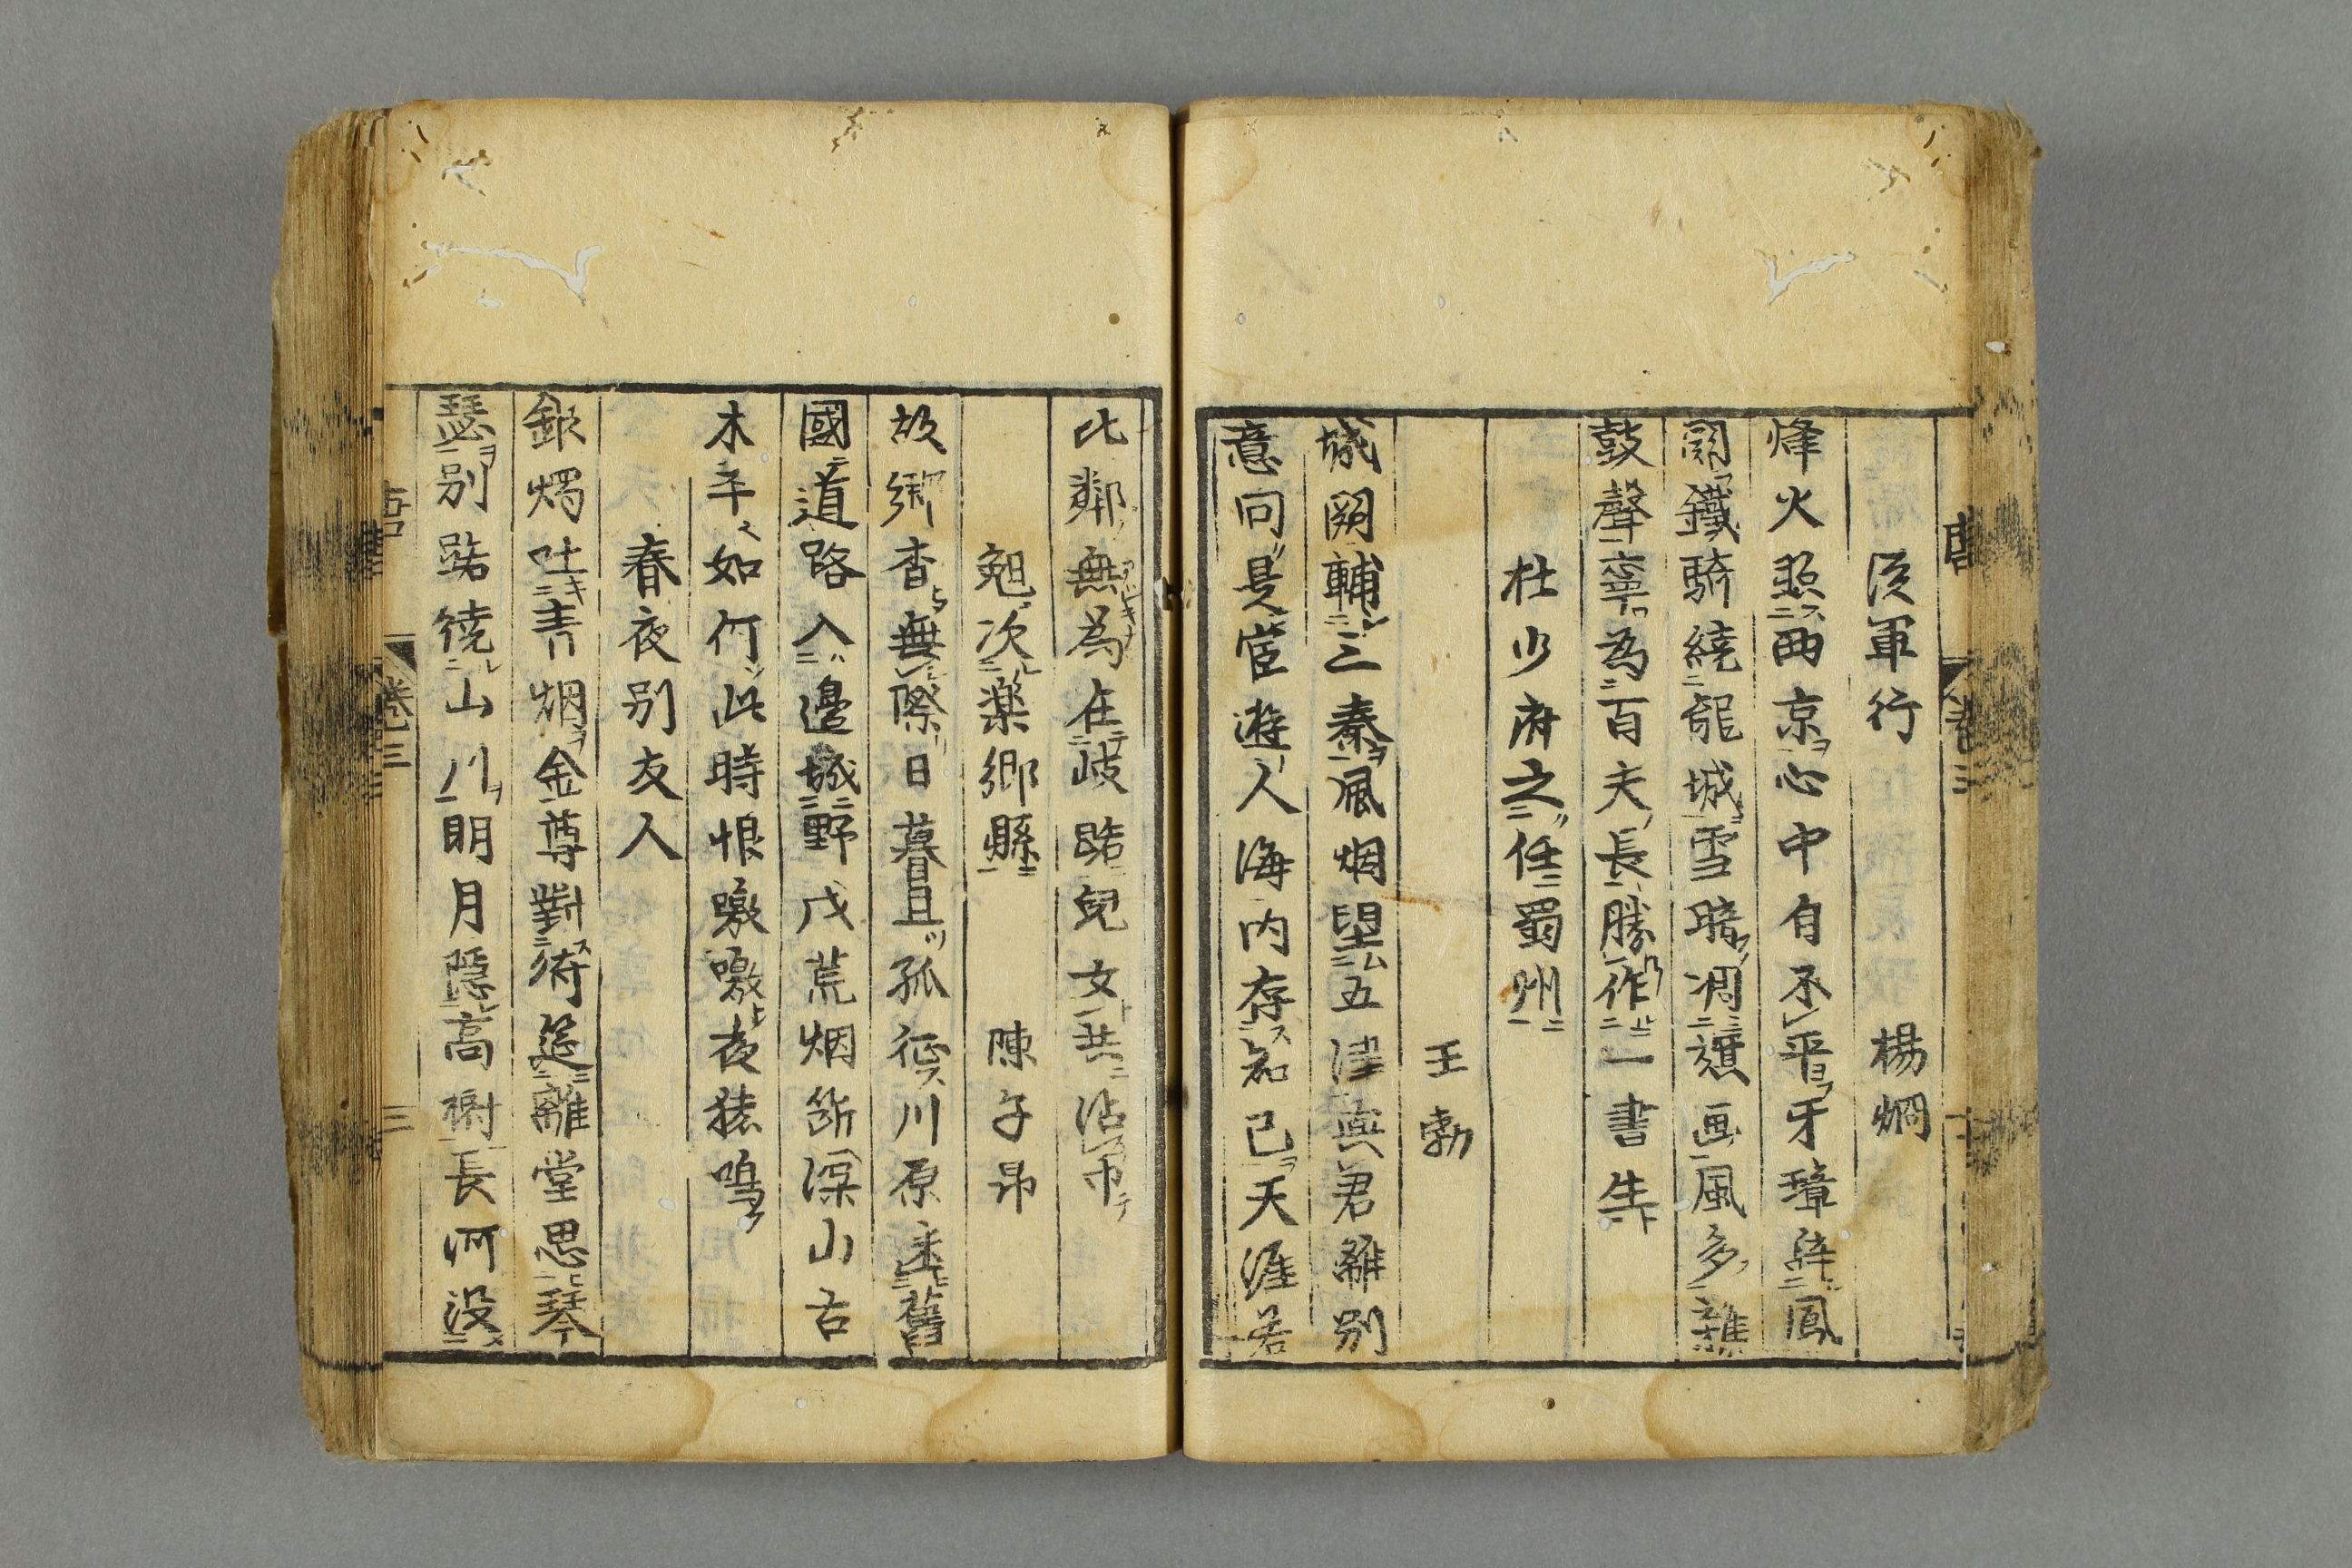 從軍行　楊烱
烽火照西京心中自不平牙璋辞鳳
闕鐵騎繞龍城雪暗凋旗画風多雜
鼓聲寧為百夫長勝作一書生
杜少府之任蜀州
王勃
城闕輔三秦風烟望五津與君離別
意同是宦遊人海内存知己天涯若
比鄰無為在岐路兒女共沾巾
晩次楽郷縣　陳子昂
故郷杳無際日暮且孤征川原迷舊
國道路入邊城野戍荒烟断深山古
木平如何此時恨噭噭夜猿鳴
春夜別友人
銀燭吐青烟金尊對綺筵離堂思琴
瑟別路繞山川明月隠高樹長河没
唐　巻三　三